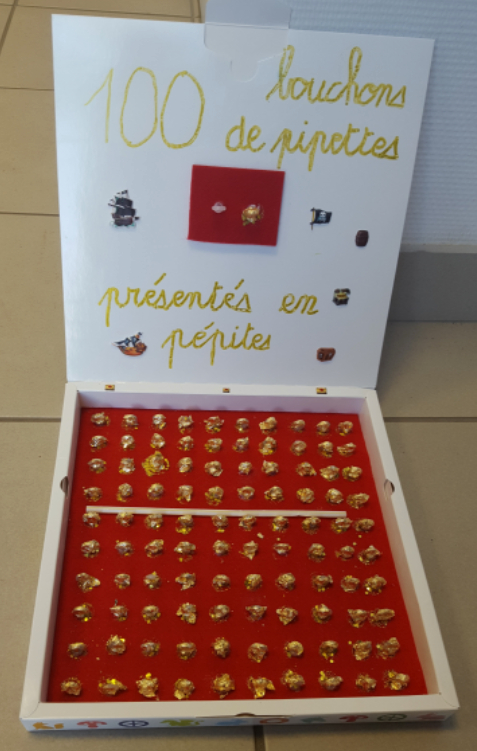 100 bouchons
de pipettes
présentés en
pépites